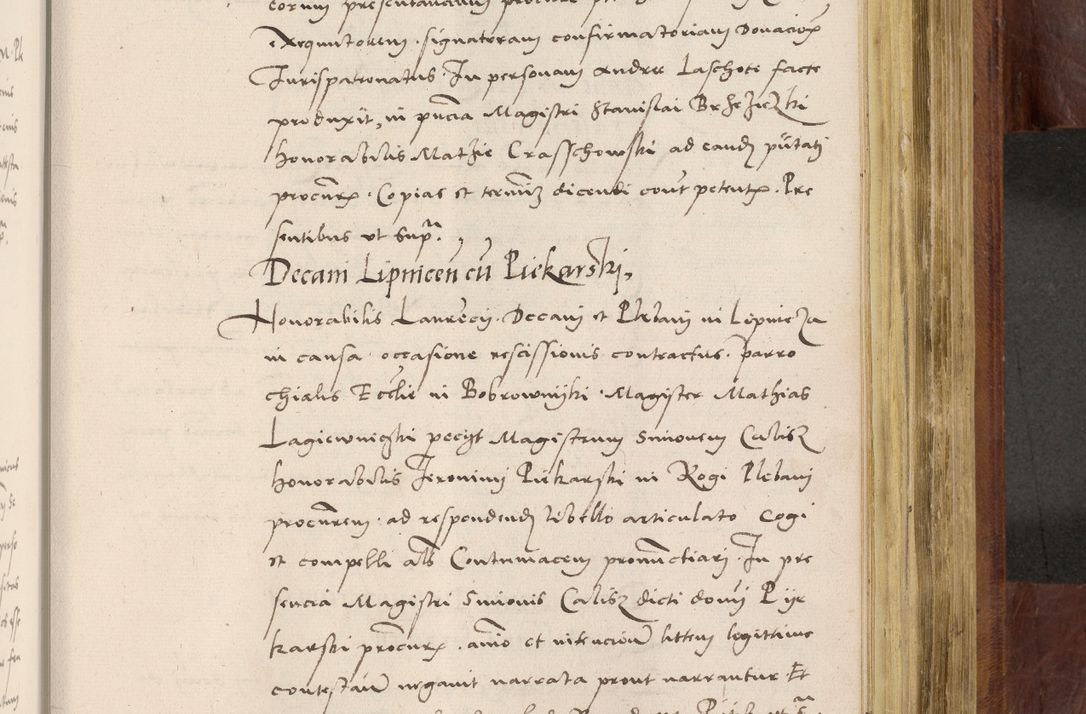 Exequutorem. signaturam confirmatoriam Donacioꝝ
Jurispatronatus. In personam Andree Laschote facte
produxit, in pñcia Magistri Stanislai Brzeziezki
honorabilis Mathie Crasschowski ad eandẽ pũtati
procũꝝ. Copias et termiñ dicendi cont̃ petentꝝ. Pre
sentibus ut supra.
Decani Lipnicen cũ Piekarski,
Honorabilis Laurẽcii. Decani et Plebani in Lipnicza
in causa occasione rescissionis contractus. parro
chialis Ecclie in Bobrowniki. Magister Mathias
Lagiewniczki pecijt Magistrum Simonem Calisz
honorabilis Jeronimi Piekarski in Rogi Plebani
procũrem. ad respondendũ libello articulato Cogi
et compelli als Contumacem pronunctiari. In pre
sencia Magistri Simonis Calisz dicti domĩ Pije
karski procũꝝ. aĩo et intencione littem legittime
contestañ negavit narrata prout narrantur Et